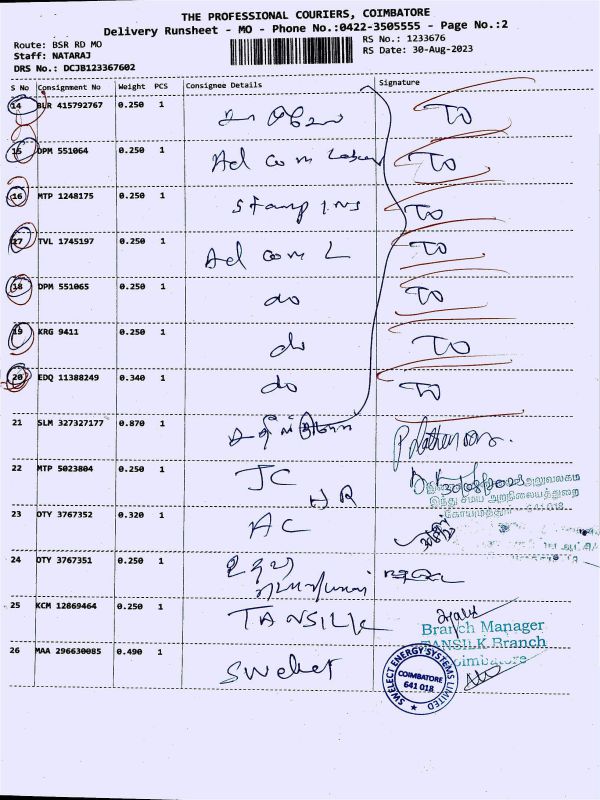 THE PROFESSIONAL COURIERS, COIMBATORE
Delivery Runsheet - MO - Phone No.:0422-3505555 - Page No.:2
Route: BSR RD MO
Staff: NATARAJ
DRS No.: DCJB123367602
RS No.: 1233676
RS Date: 30-Aug-2023
S No Consignment No Weight PCS Consignee Details Signature
14 BLR 415792767 0.250 1 TO
15 DPM 551064 0.250 1 Ad com TO
16 MTP 1248175 0.250 1 Stamp I.NS TO
17 TVL 1745197 0.250 1 Ad com L TO
18 DPM 551065 0.250 1 do TO
19 KRG 9411 0.250 1 do TO
20 EDQ 11388249 0.340 1 do TO
21 SLM 327327177 0.870 1
22 MTP 5023804 0.250 1 JC HR
இந்து சமய அறநிலையத்துறை
641 018
23 OTY 3767352 0.320 1 AC
24 OTY 3767351 0.250 1
25 KCM 12869464 0.250 1 TANSILK
Branch Manager
TANSILK Branch
Coimbatore
26 MAA 296630085 0.490 1 Swelect
SWELECT ENERGY SYSTEMS LIMITED
COIMBATORE
641 018